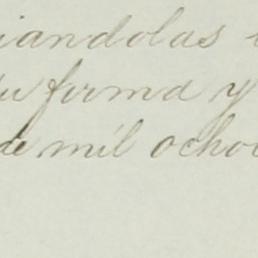 iandolas
su forma y
de mil ocho